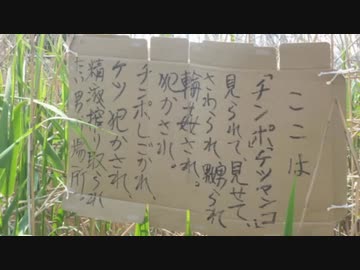 ここは
「チンポ、ケツマンコ」
見られて、見せて、
さわられ、嬲られ
輪姦され。
犯かされ。
チンポしごかれ、
ケツ犯かされ、
精液搾り取られ
男場所。